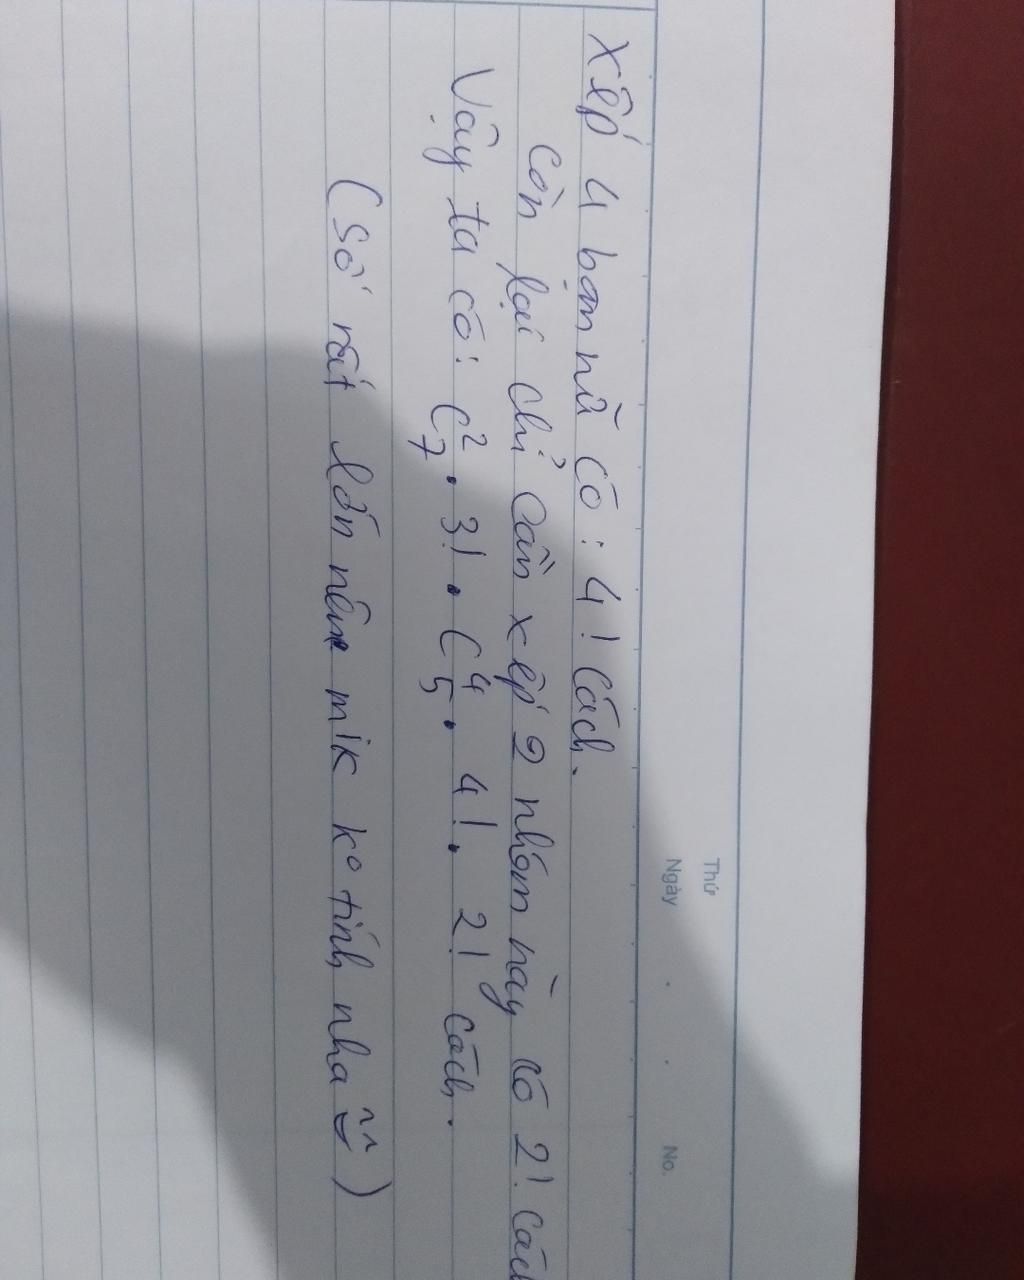 Thứ
Ngày . . No.
Xếp 4 bạn nữ có : 4! cách.
Còn lại chỉ cần xếp 2 nhóm này có 2! các
Vậy ta có: C²₇ . 3! . C⁴₅ . 4! . 2! cách.
(Số rất lớn nên mik ko tính nha ^^)